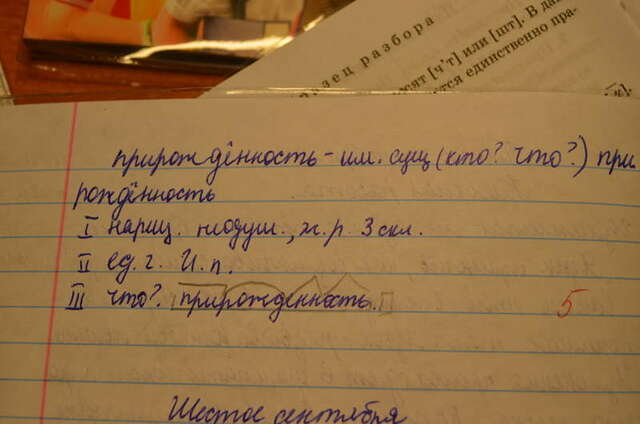 природность - им. сущ (кто? что?) при
рождённость
I нариц. неодуш., ж. р. 3 скл.
II ед. г. И. п.
III что? прирожденность.
Шестое сентября
5
разец разбора
сят [ч'т] или [шт]. В да
тся единственно пра-